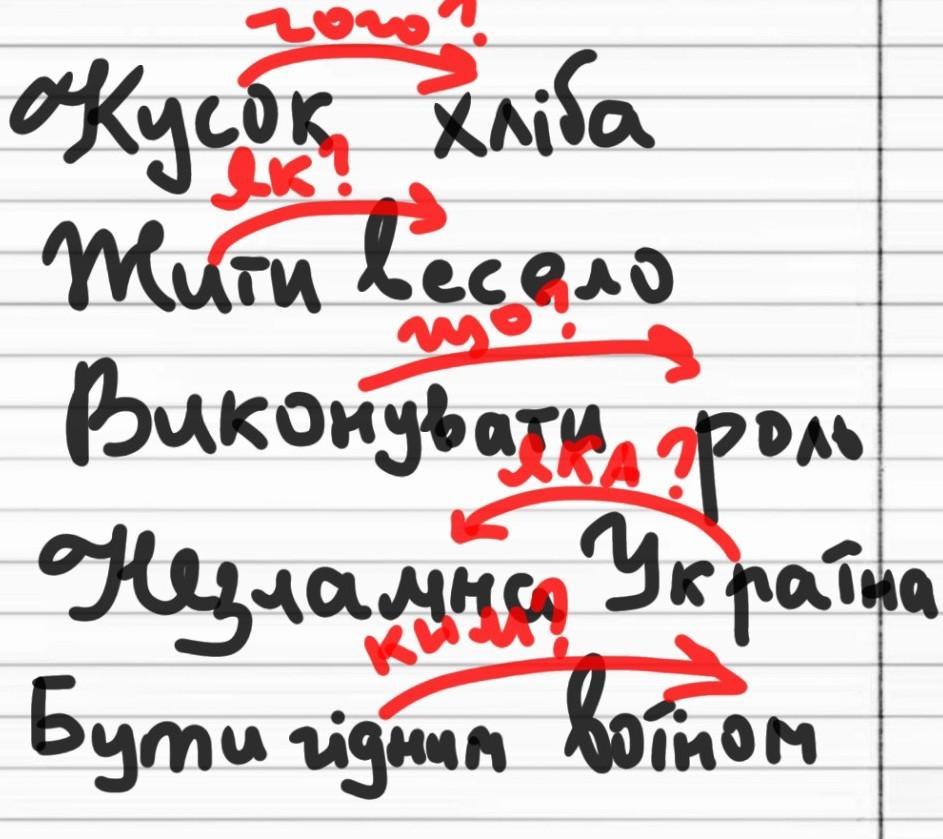 чого?
Кусок хліба
як?
Жити весело
що?
Виконувати роль
яка?
Незламна Україна
ким?
Бути гідним воїном